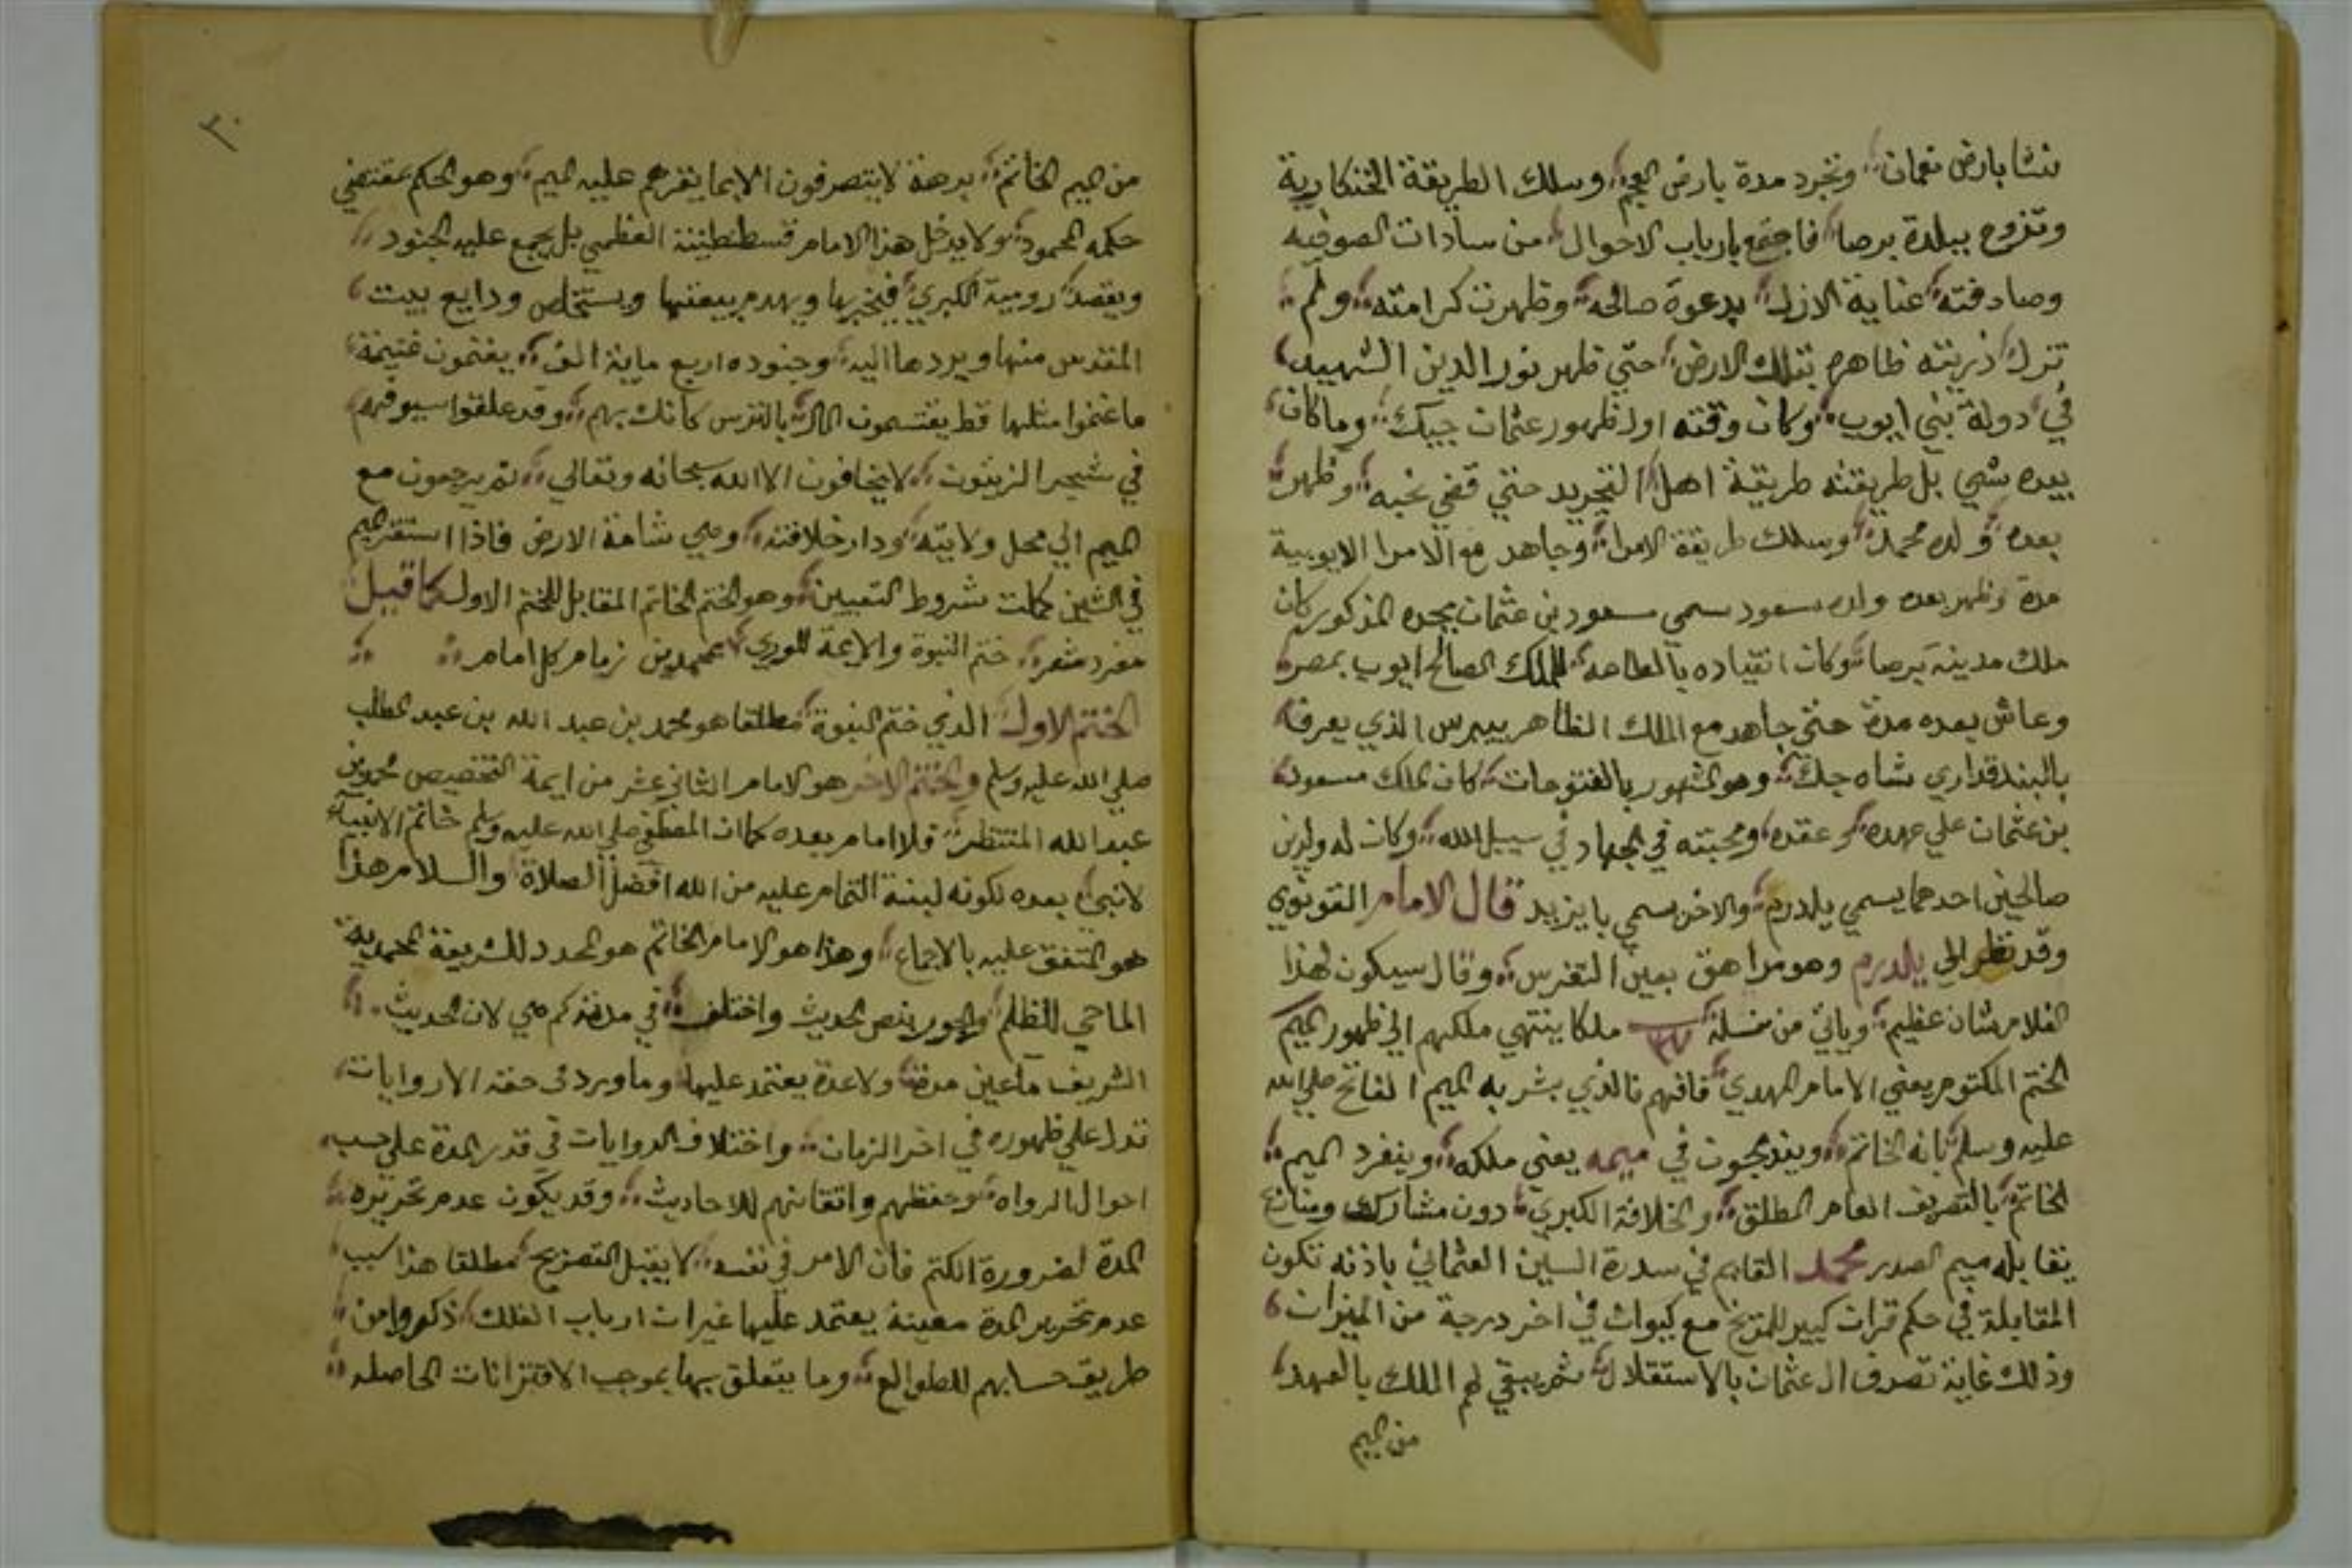 نشا بارض نعمان وتجرد مدة بارض العجم وسلك الطريقة الخنكارية
وتزوج ببلدة برصا فاجتمع بارباب الاحوال من سادات الصوفيه
وصادفته عناية الازل بدعوة صالحه وظهرت كرامته ولم
تزل ذريته ظاهره بتلك الارض حتي ظهر نور الدين الشهيد
في دولة بني ايوب وكان وقته اول ظهور عثمان جيك وما كان
بيده شي بل طريقته طريقة اهل التجريد حتي قضي نحبه وظهر
بعده ولده محمد وسلك طريقة الامرا وجاهد مع الامرا الايوبية
مدة وظهر بعده ولده سعود سمي سعود بن عثمان بجده المذكور كان
ملك مدينة برصا وكان انقياده بالطاعه للملك الصالح ايوب بمصر
وعاش بعده مدة حتي جاهد مع الملك الظاهر بيبرس الذي يعرف
بالبندقداري شاه جك وهو المشهور بالفتوحات كان الملك مسعود
بن عثمان علي عهده وعقده ومحبته في الجهاد في سبيل الله وكان له ولدين
صالحين احدهما يسمي يلدرم والاخر يسمي بايزيد قال الامام القونوي
وقد نظر الي يلدرم وهو مراهق بعين التفرس وقال سيكون لهذا
الغلام شان عظيم وياتي من نسله ملكا ينتهي ملكهم الي ظهور الميم
الختم المكتوم يعني الامام المهدي فافهم فالذي بشر به الميم الفاتح صلي الله
عليه وسلم بانه الخاتم ويندمجون في ميمه يعني ملكه وينفرد الميم
الخاتم بالتصريف العام المطلق والخلافة الكبري دون مشارك ومنازع
يقابله ميم الصدر محمد القايم في سدرة السين العثماني باذنه تكون
المقابلة في حكم قران كبير للمريخ مع كيوان في اخر درجة من الميزان
وذلك غاية تصرف ال عثمان بالاستقلال ثم يبقي لهم الملك بالعهد
من الميم
٣٠
من الميم الخاتم برهة لا يتصرفون الا بما يقرهم عليه الميم وهو الحكم بمقتضي
حكمه المحمود ولا يدخل هذا الامام قسطنطينة العظمي بل يجمع عليه الجنود
ويقصد رومية الكبري فيخربها ويهدم بيعتها ويستخلص ودايع بيت
المقدس منها ويردها اليه وجنوده اربع ماية الف يغنمون غنيمة
ما غنموا مثلها قط يقتسمون المال بالترس كانك بهم وقد علقوا سيوفهم
في شجر الزيتون لا يخافون الا الله سبحانه وتعالي ثم يرجعون مع
الميم الي محل ولايته ودار خلافته وهي شامة الارض فاذا استقر الميم
في الشين كملت شروط التعيين وهو الختم الخاتم المقابل للختم الاول كما قيل
مفرد شعر ختم النبوة والايمة للوري بمحمدين زمام كل امام
الختم الاول الذي ختم النبوة مطلقا هو محمد بن عبد الله بن عبد المطلب
صلي الله عليه وسلم والختم الاخر هو الامام الثاني عشر من ايمة التخصيص محمد بن
عبد الله المنتظر فلا امام بعده كما ان المصطفي صلي الله عليه وسلم خاتم الانبياء
لا نبي بعده لكونه لبنة التمام عليه من الله افضل الصلاة والسلام هذا
هو المتفق عليه بالاجماع وهذا هو الامام الخاتم هو المجدد للشريعة المحمدية
الماحي للظلم والجور بنص الحديث واختلف في مدته كم هي لان الحديث
الشريف ما عين مدة ولا عدة يعتمد عليها وما ورد في حقه الا روايات
تدل علي ظهوره في اخر الزمان واختلاف الروايات في قدر المدة علي حسب
احوال الرواه وحفظهم واتقانهم للاحاديث وقد يكون عدم تحريره
المدة لضرورة الكتم فان الامر في نفسه لا يقبل التصريح مطلقا هذا سبب
عدم تحرير المدة معينة يعتمد عليها غيران ارباب الفلك ذكروا من
طريق حسابهم للطوالع وما يتعلق بها بموجب الاقترانات الحاصله